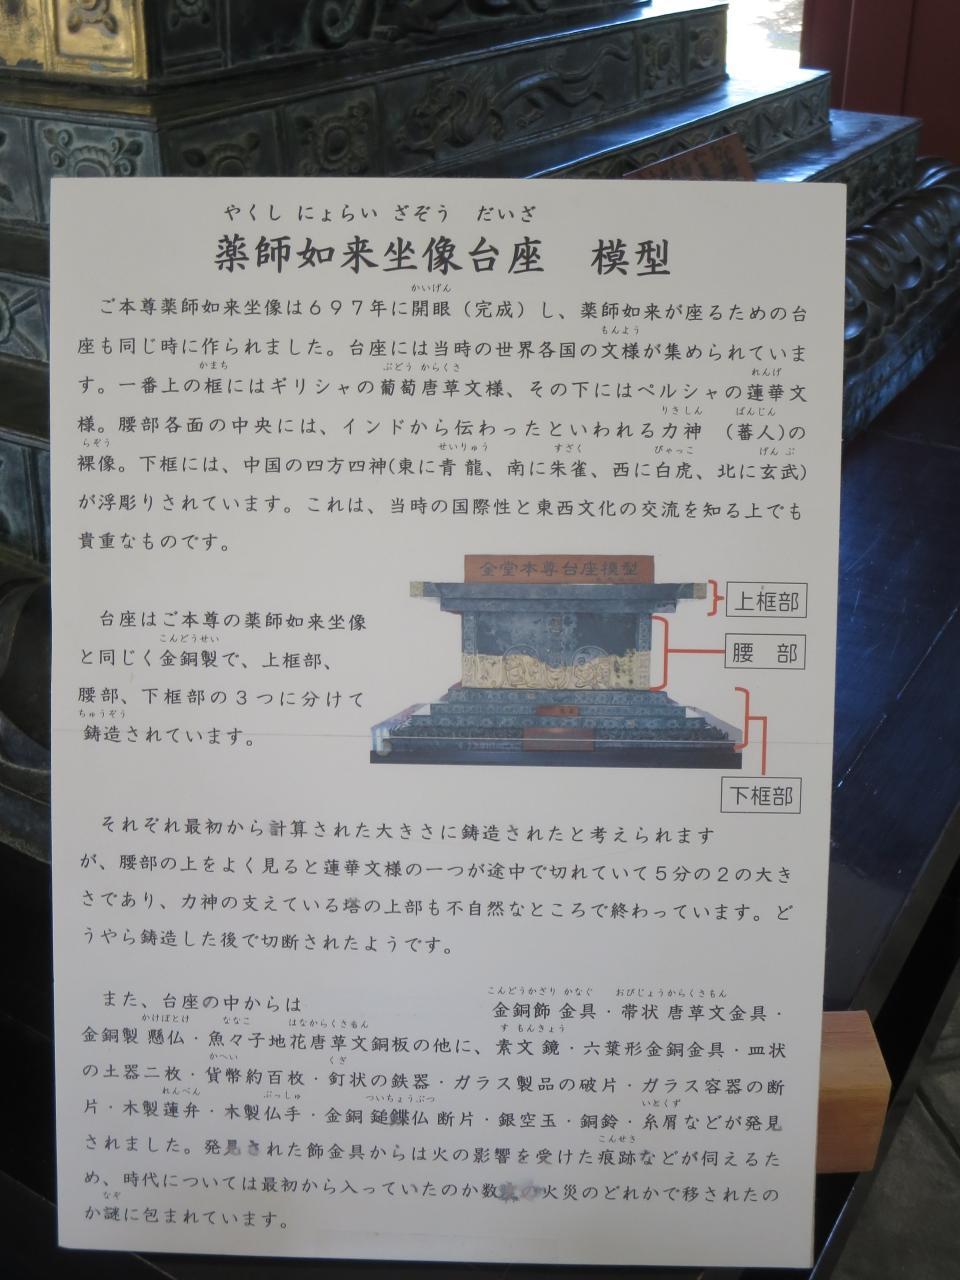 やくし にょらい ざぞう だいざ
薬師如来坐像台座 模型
かいげん
ご本尊薬師如来坐像は697年に開眼（完成）し、薬師如来が座るための台
もんよう
座も同じ時に作られました。台座には当時の世界各国の文様が集められていま
かまち ぶどう からくさ れんげ
す。一番上の框にはギリシャの葡萄唐草文様、その下にはペルシャの蓮華文
りきしん ばんじん
様。腰部各面の中央には、インドから伝わったといわれる力神 （蕃人)の
らぞう せいりゅう すざく びゃっこ げんぶ
裸像。下框には、中国の四方四神(東に青龍、南に朱雀、西に白虎、北に玄武)
が浮彫りされています。これは、当時の国際性と東西文化の交流を知る上でも
貴重なものです。
金堂本尊台座模型
上框部
腰 部
下框部
台座はご本尊の薬師如来坐像
こんどうせい
と同じく金銅製で、上框部、
腰部、下框部の3つに分けて
ちゅうぞう
鋳造されています。
それぞれ最初から計算された大きさに鋳造されたと考えられます
が、腰部の上をよく見ると蓮華文様の一つが途中で切れていて5分の2の大き
さであり、力神の支えている塔の上部も不自然なところで終わっています。ど
うやら鋳造した後で切断されたようです。
こんどうかざり かなぐ おびじょうからくさもん
また、台座の中からは 金銅飾 金具・帯状 唐草文金具・
かけぼとけ ななこ はなからくさもん す もんきょう
金銅製 懸仏・魚々子地花唐草文銅板の他に、素文 鏡・六葉形金銅金具・皿状
かへい くぎ
の土器二枚・貨幣約百枚・釘状の鉄器・ガラス製品の破片・ガラス容器の断
れんべん ぶっしゅ ついちょうぶつ いとくず
片・木製蓮弁・木製仏手・金銅 鎚鍱仏 断片・銀空玉・銅鈴・糸屑などが発見
こんせき
されました。発見された飾金具からは火の影響を受けた痕跡などが伺えるた
め、時代については最初から入っていたのか数度の火災のどれかで移されたの
なぞ
か謎に包まれています。